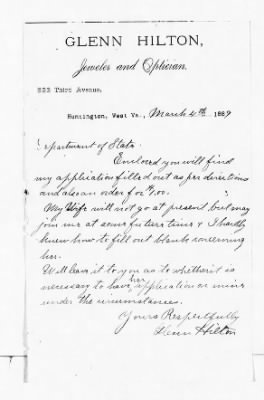 GLENN HILTON,
Jeweler and Optician.
222 Third Avenue.
Huntington, West Va., March 4th 1889
Department of State.
Enclosed you will find
my application filled out as per directions
and also an order for $1.00.
My Wife will not go at present but may
join me at some future time & I hardly
knew how to fill out blank concerning
her.
Will leave it to you as to whether it is
necessary to have her application or mine
under the circumstances.
Yours Respectfully
Glenn Hilton